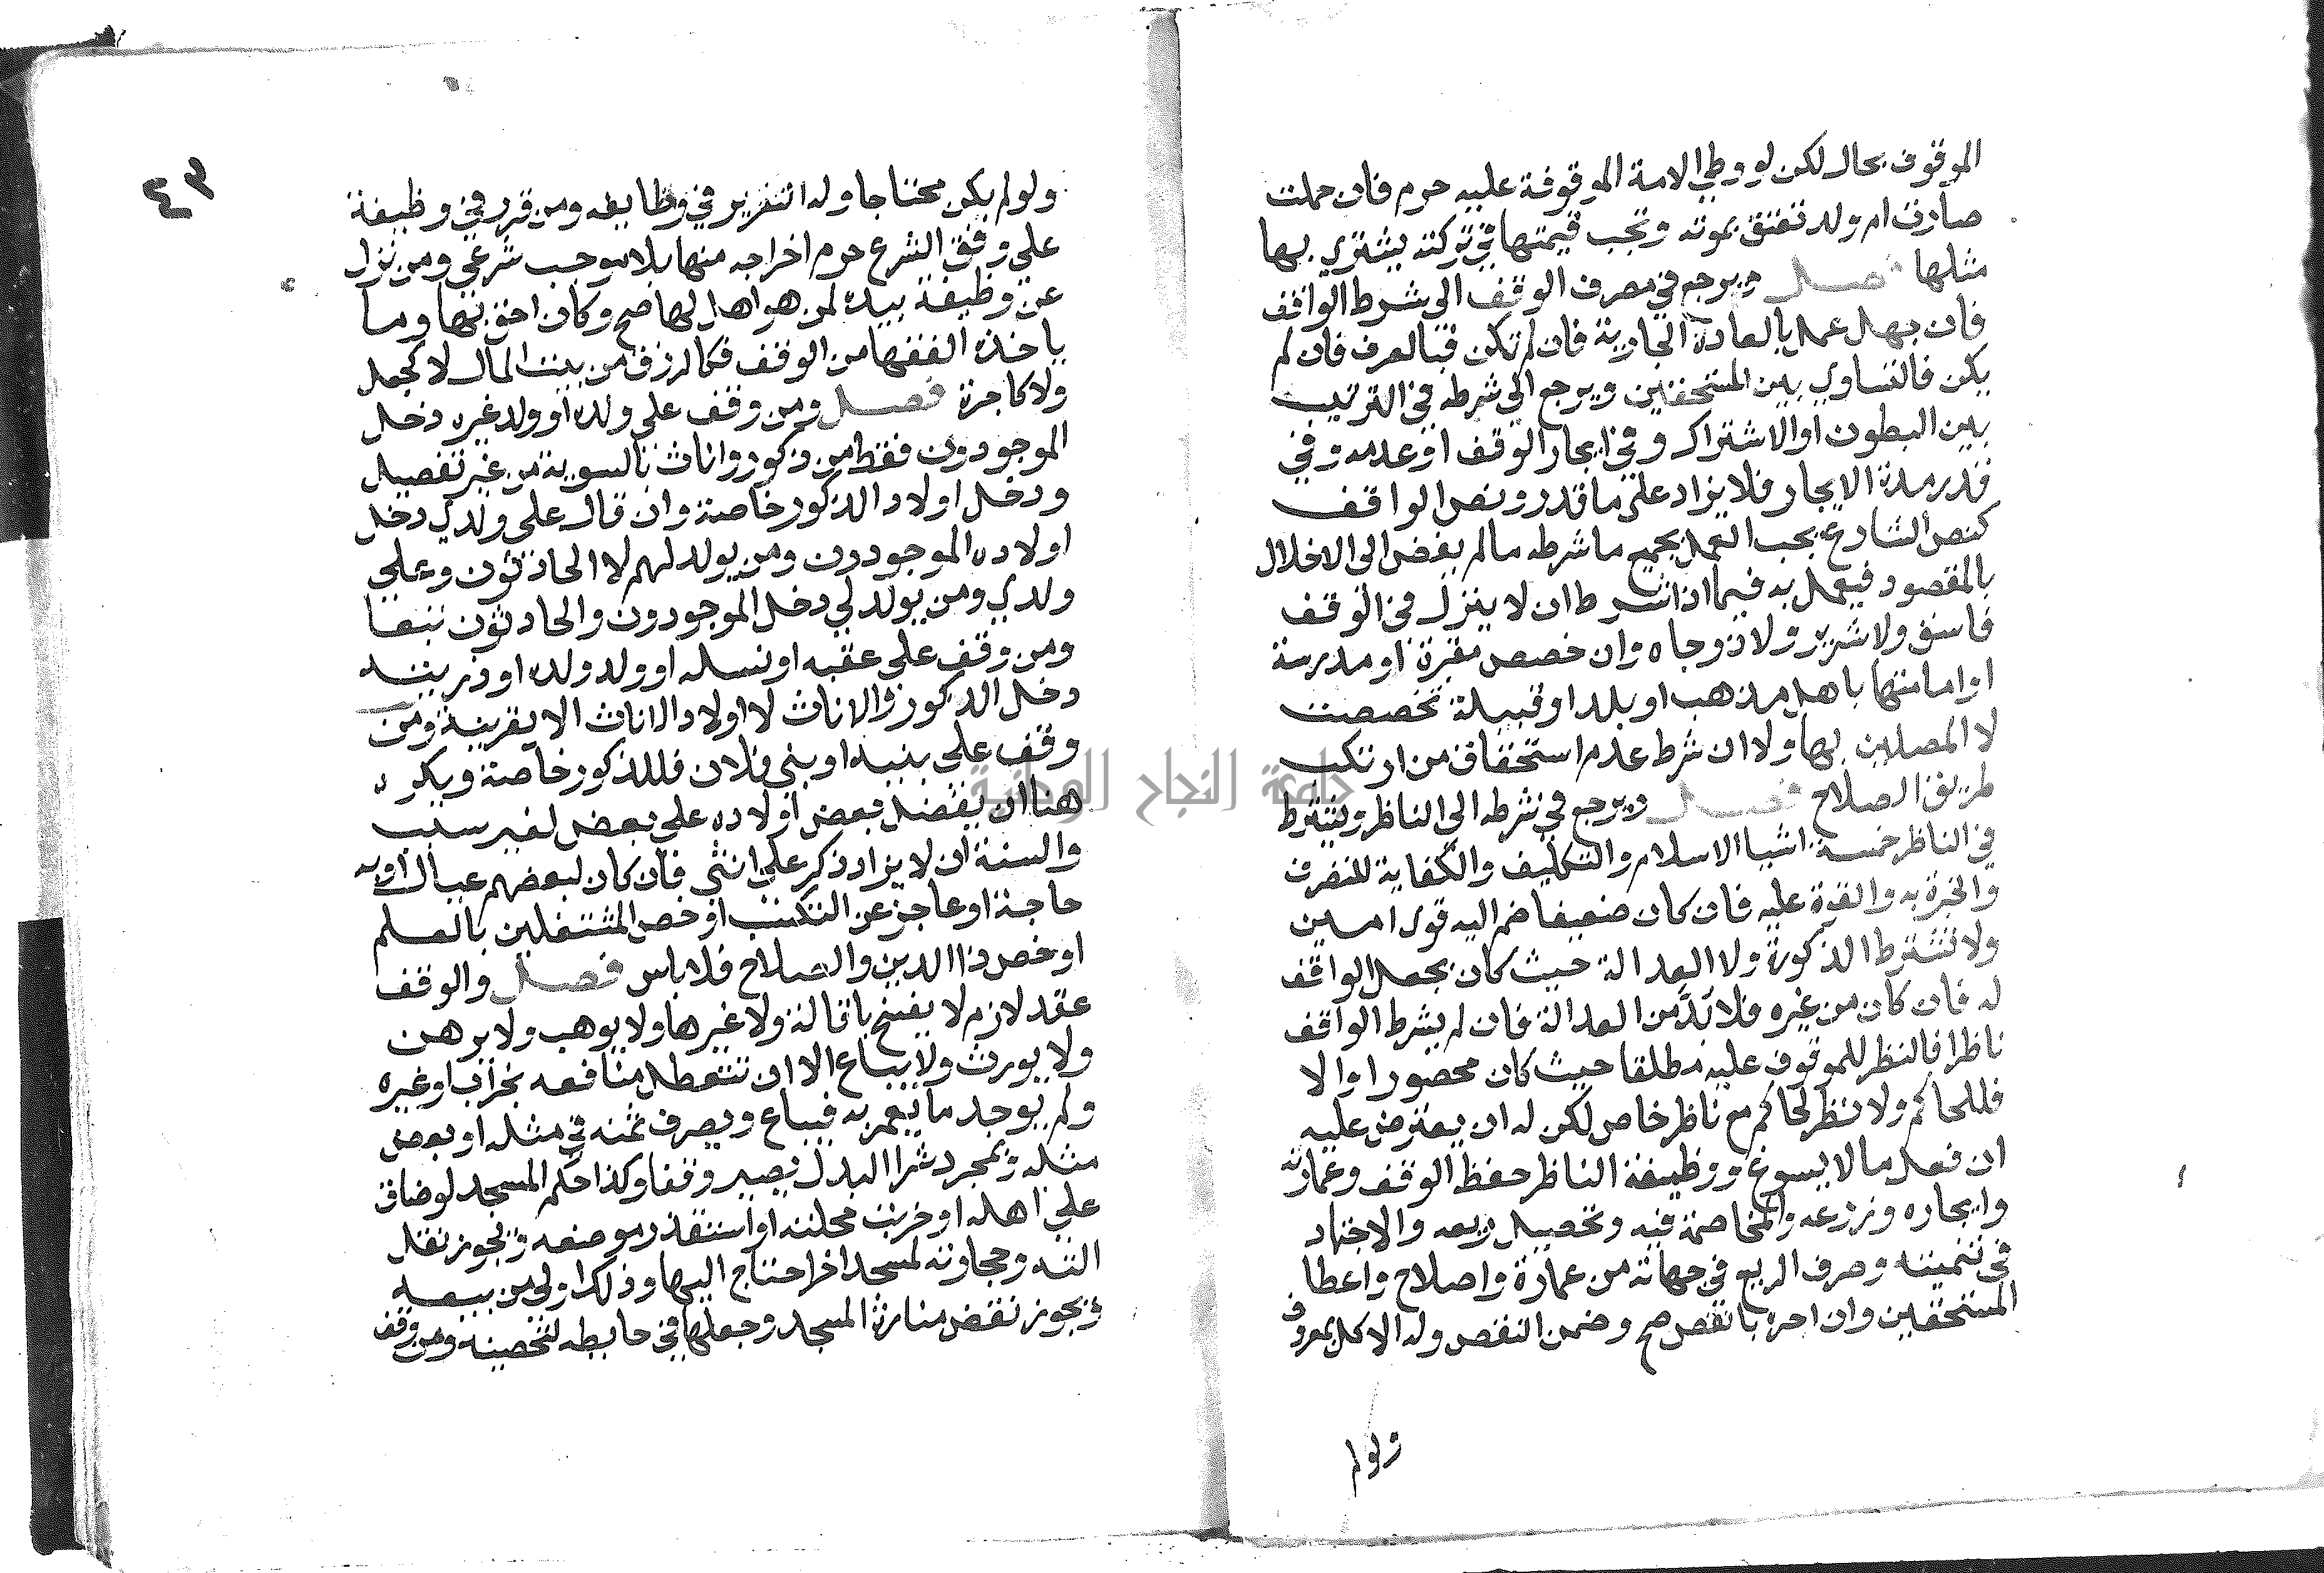 الموقوف بحال لكن لو وطي الامة الموقوفة عليه حرم فان حملت
صارت ام ولد تعتق بموته وتجب قيمتها في تركته يشتري بها
مثلها فصل ويرجع في مصرف الوقف الى شرط الواقف
فان جهل عمل بالعادة الجارية فان لم تكن فبالعرف فان لم
يكن فالتساوي بين المستحقين ويرجع الي شرطه في الترتيب
بين البطون او الاشتراك وفي ايجار الوقف او عدمه وفي
قدر مدة الايجار فلا يزاد على ما قدر ونص الواقف
كنص الشارع يجب العمل بجميع ما شرطه ما لم يفض الى الاخلال
بالمقصود فيعمل به فيما اذا شرط ان لا ينزل في الوقف
فاسق ولا شرير ولا ذو جاه وان خصص مقبرة او مدرسة
او امامتها باهل مذهب او بلد او قبيلة تخصصت
لا المصلين بها ولا ان شرط عدم استحقاق من ارتكب
طريق الصلاح فصل ويرجع في شرطه الي الناظر ويشترط
في الناظر خمسة اشيا الاسلام والتكليف والكفاية للتصرف
والخبرة به والقوة عليه فان كان ضعيفا ضم اليه قوى امين
ولا تشترط الذكورة ولا العدالة حيث كان بجعل الواقف
له فان كان من غيره فلا بد من العدالة فان لم يشرط الواقف
ناظرا فالنظر للموقوف عليه مطلقا حيث كان محصورا والا
فللحاكم ولا نظر لحاكم مع ناظر خاص لكن له ان يعترض عليه
ان فعل ما لا يسوغ ووظيفة الناظر حفظ الوقف وعمارته
وايجاره وزرعه والمخاصمة فيه وتحصيل ريعه والاجتهاد
في تنميته وصرف الريع في جهاته من عمارة واصلاح واعطا
المستحقين وان اجره بانقص صح وضمن النقص وله الاكل بمعروف
ولو لم
٤٣
ولو لم يكن محتاجا وله التقرير في وظايفه ومن قرر في وظيفة
علي وفق الشرع حرم اخراجه منها بلا موجب شرعي ومن نزل
عن وظيفة بيده لمن هو اهل لها صح وكان احق بها وما
ياخذه الفقها من الوقف فكالرزق من بيت المال لا كجعل
ولا كاجرة فصل ومن وقف على ولده او ولد غيره دخل
الموجودون فقط من ذكور واناث بالسوية من غير تفصيل
ودخل اولاد الذكور خاصة وان قال على ولدي دخل
اولاده الموجودون ومن يولد لهم لا الحادثون وعلي
ولدي ومن يولد لي دخل الموجودون والحادثون تبعا
ومن وقف على عقبه او نسله او ولد ولده او ذريته
دخل الذكور والاناث لا اولاد الاناث الا بقرينة ومن
وقف على بنيه او بني فلان فللذكور خاصة ويكره
هنا ان يفضل بعض اولاده علي بعض لغير سبب
والسنة ان لا يزاد ذكر على انثي فان كان لبعضهم عيال او به
حاجة او عاجز عن التكسب او خص المشتغلين بالعلم
او خص ذا الدين والصلاح فلا باس فصل والوقف
عقد لازم لا يفسخ باقالة ولا غيرها ولا يوهب ولا يرهن
ولا يورث ولا يباع الا ان تتعطل منافعه بخراب او غيره
ولم يوجد ما يعمر به فيباع ويصرف ثمنه في مثله او بعض
مثله وبمجرد شرا البدل يصير وقفا وكذا حكم المسجد لو ضاق
على اهله او خربت محلته او استقذر موضعه ويجوز نقل
الته وحجارته لمسجد اخر احتاج اليها وذلك اولى من بيعه
ويجوز نقض منارة المسجد وجعلها في حايطه لتحصينه ومن وقف
جامعة النجاح الوطنية